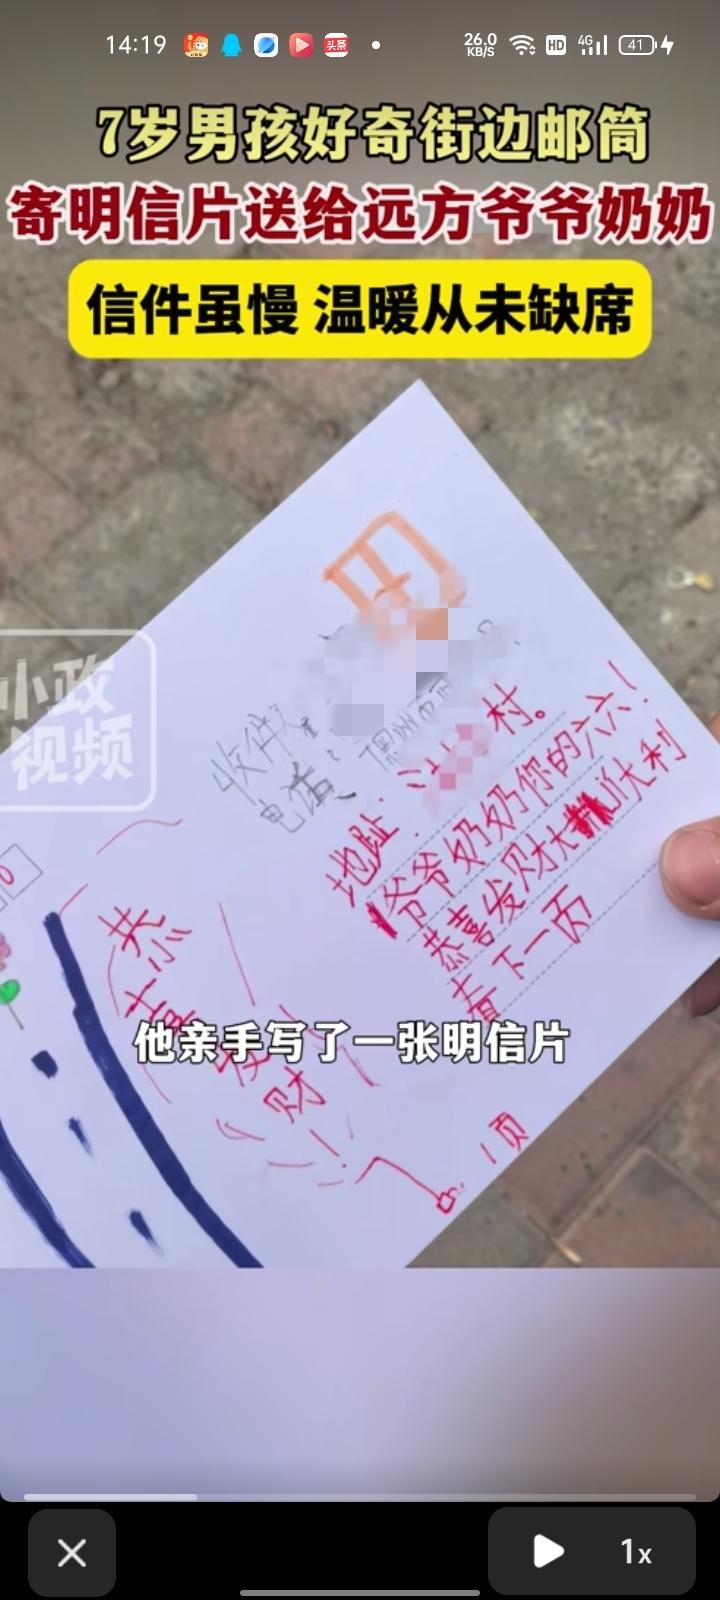 14:19
头条
26.0
KB/S
HD
4G
41
7岁男孩好奇街边邮筒
寄明信片送给远方爷爷奶奶
信件虽慢 温暖从未缺席
小政
视频
收件人
电话:
地址:
村。
爷爷奶奶你的六六!
恭喜发财大 大利
看下一页
0
恭
喜
发
财
!
1页
他亲手写了一张明信片
1x